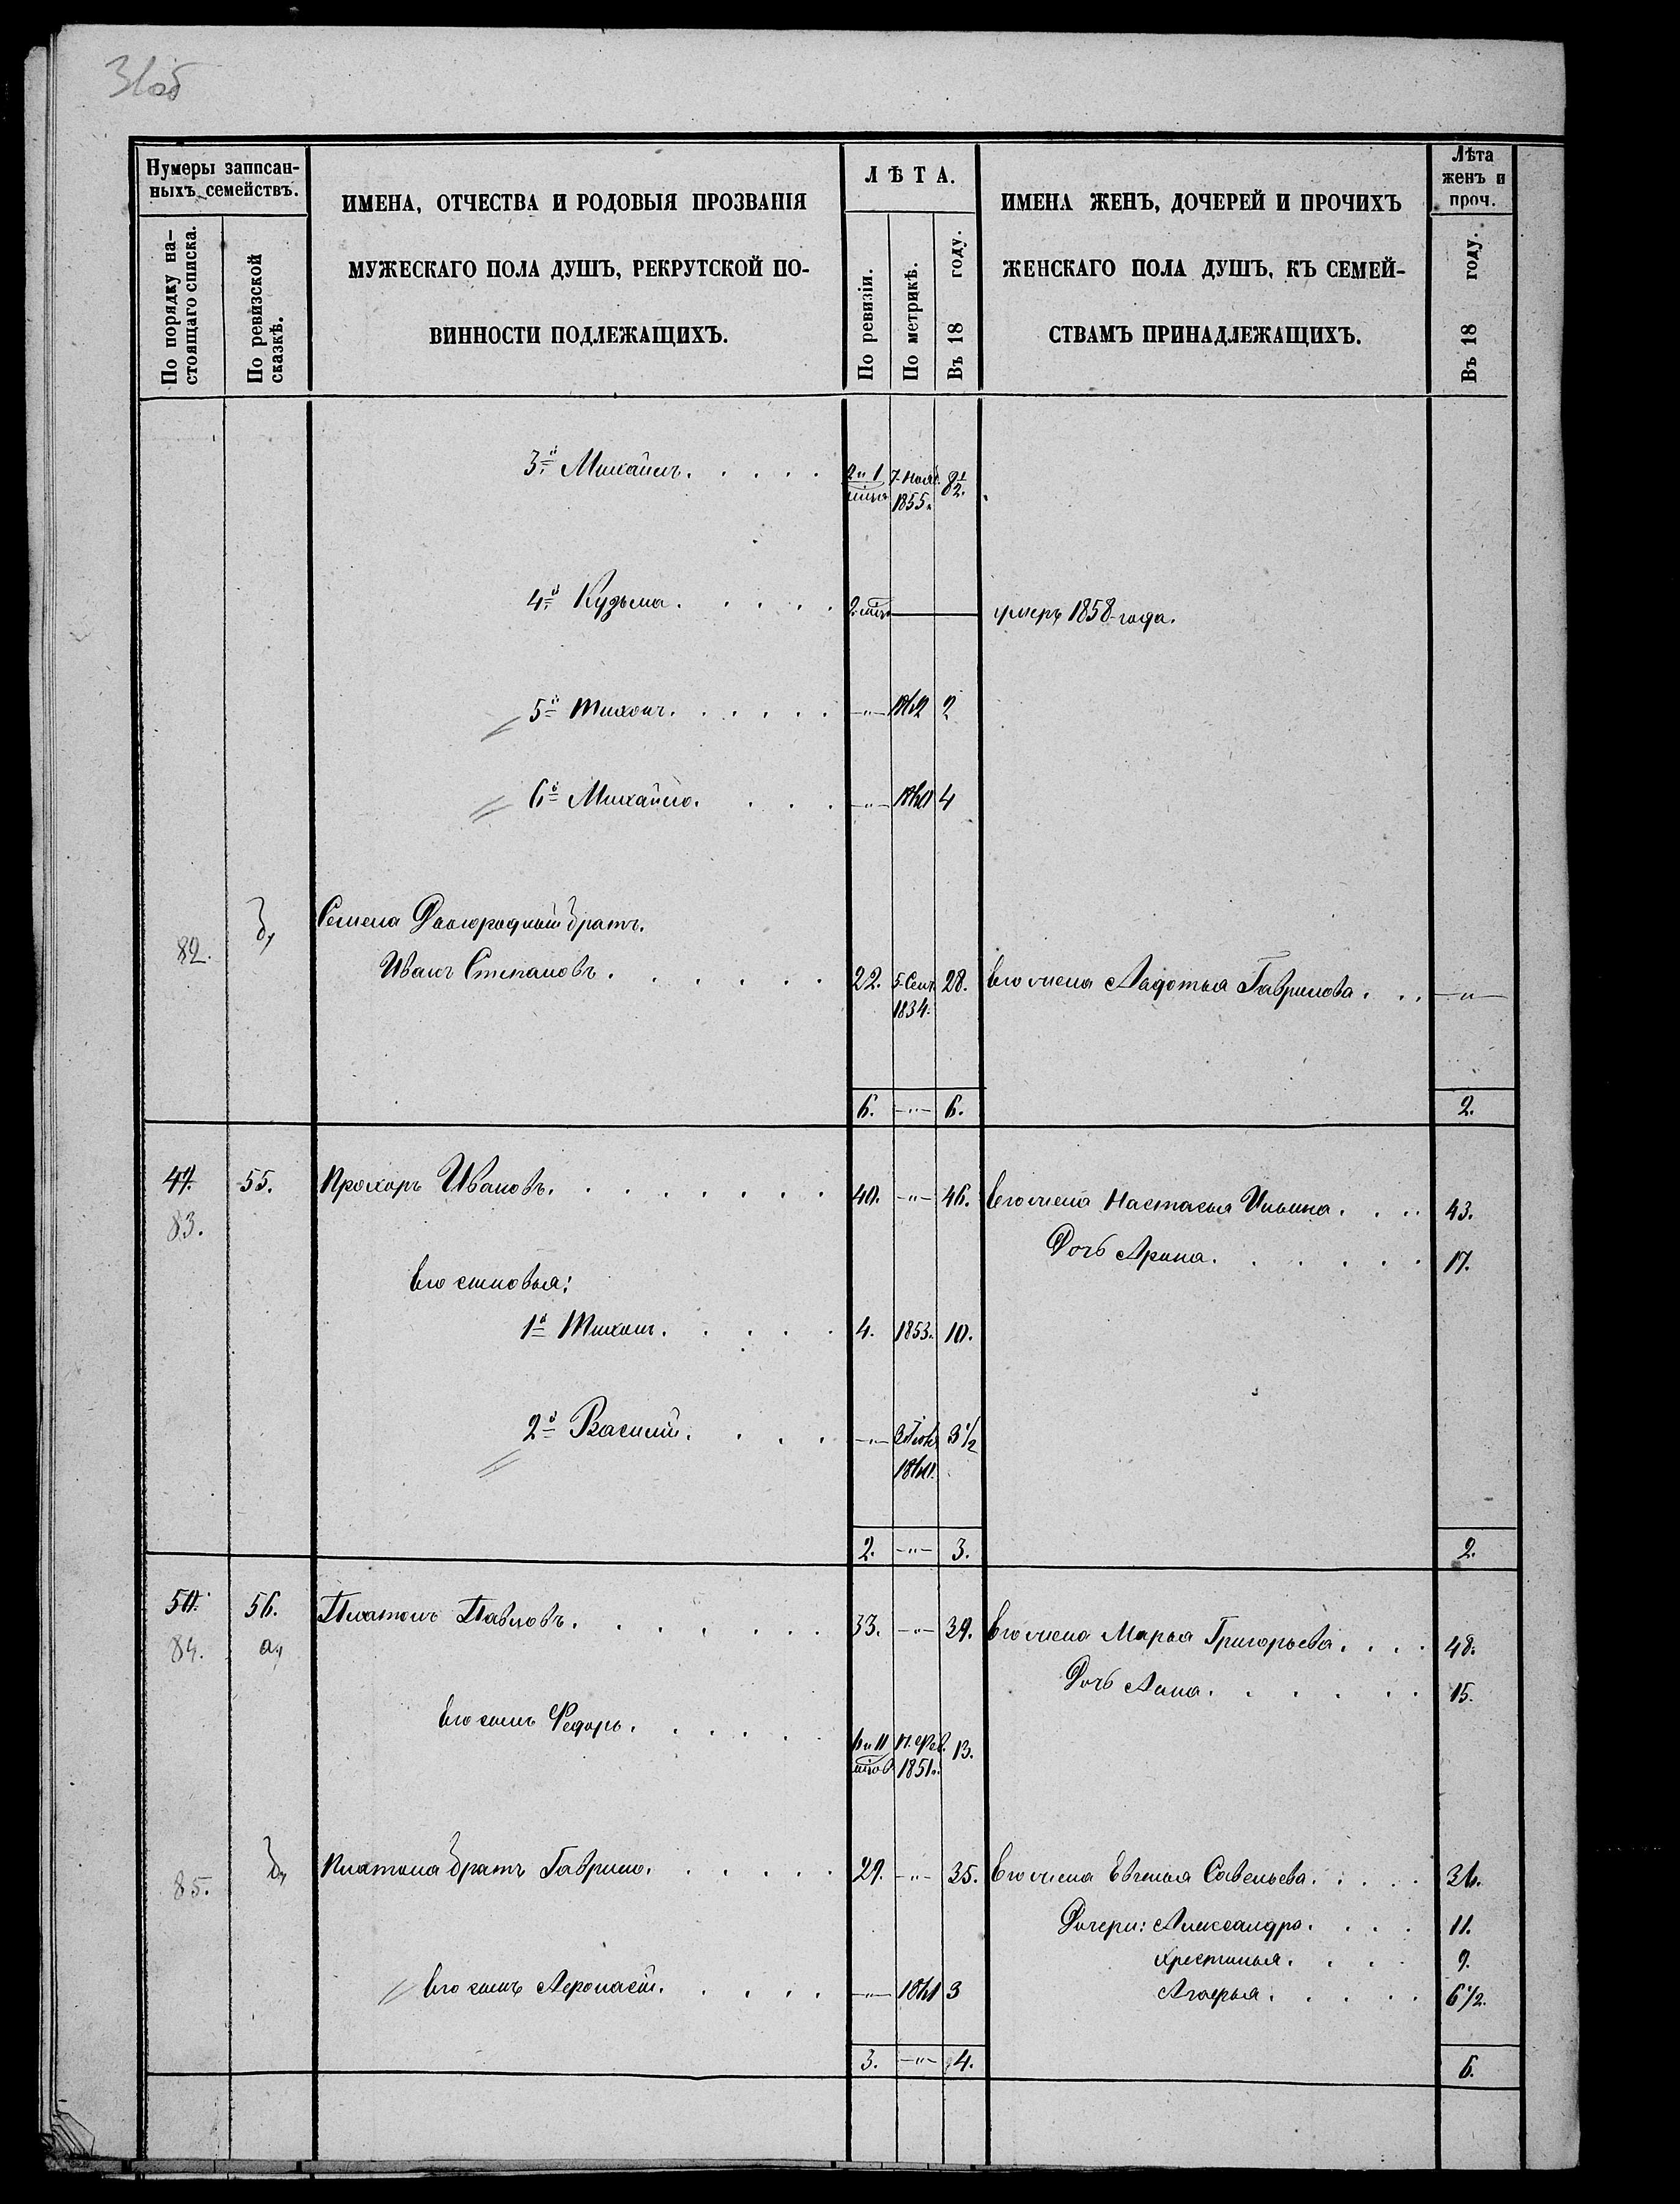 31об
Нумеры записан-
ныхъ семействъ.
По порядку на-
стоящаго списка.
По ревизской
сказкѣ.
ИМЕНА, ОТЧЕСТВА И РОДОВЫЯ ПРОЗВАНІЯ
МУЖЕСКАГО ПОЛА ДУШЪ, РЕКРУТСКОЙ ПО-
ВИННОСТИ ПОДЛЕЖАЩИХЪ.
ЛѢТА.
По ревизіи.
По метрикѣ.
Въ 18 году.
ИМЕНА ЖЕНЪ, ДОЧЕРЕЙ И ПРОЧИХЪ
ЖЕНСКАГО ПОЛА ДУШЪ, КЪ СЕМЕЙ-
СТВАМЪ ПРИНАДЛЕЖАЩИХЪ.
Лѣта
женъ и
проч.
Въ 18 году.
3й Михаилъ. 2 и 1 7 Нояб. 8 1/2.
1855.
4й Кузьма. умеръ 1858 года.
5й Тихонъ. -"- 1862 2
6й Михайло. -"- 1860 4
Семена Двоюродный братъ.
82. б,
Иванъ Степановъ. 22. 5 Сент. 28. Его жена Авдотья Гаврилова. -"-
1834.
6. -"- 6. 2.
47. 55. Прохоръ Ивановъ. 40. -"- 46. Его жена Настасья Ильина. 43.
83.
Дочь Арина. 17.
Его сыновья:
1й Тихонъ. 4. 1853. 10.
2й Василий. -"- 3 1/2
1860.
2. -"- 3. 2.
50. 56. Платонъ Павловъ. 33. -"- 39. Его жена Марья Григорьева. 48.
84. а,
Дочь Анна. 15.
Его сынъ Федоръ. 6 и 11 17. Фев. 13.
1851.
85. б, Платона братъ Гаврило. 29. -"- 35. Его жена Евгенья Савельева. 36.
Дочери: Александра. 11.
Хрестинья. 9.
Его сынъ Афонасий. -"- 1861 3 Агафья. 6 1/2.
3. -"- 4. 6.